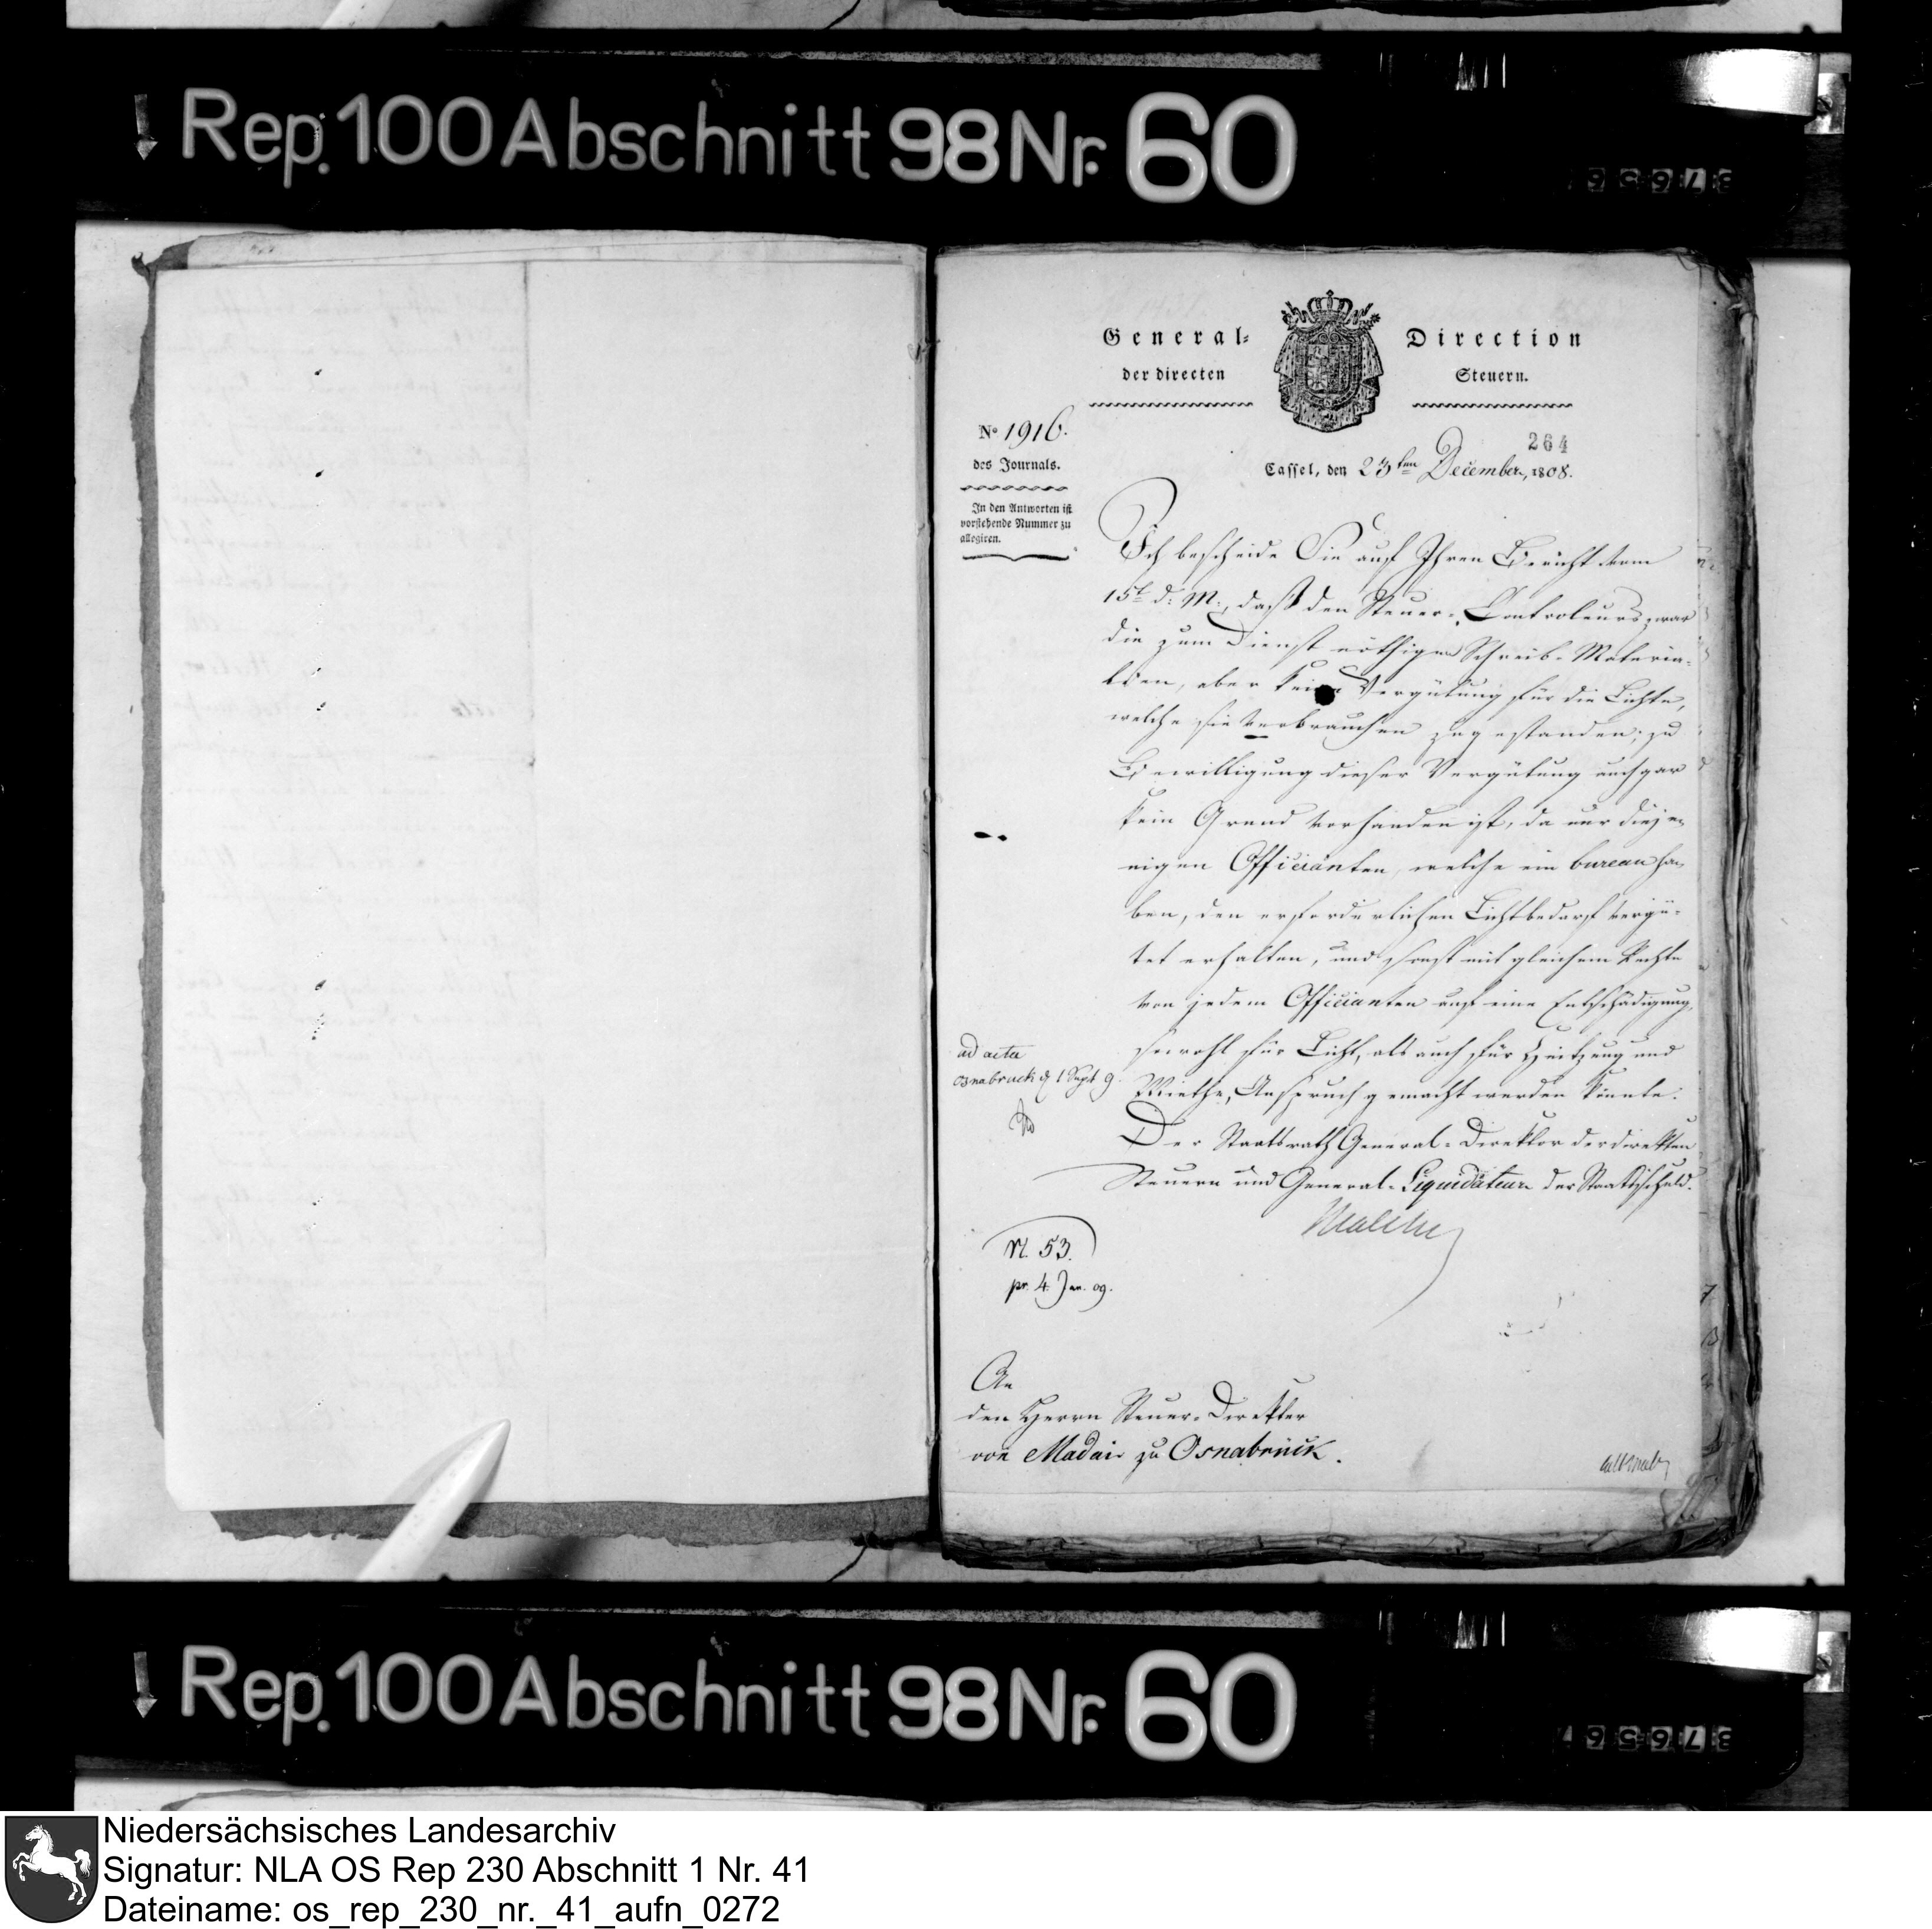 Rep. 100 Abschnitt 98 Nr. 60
37656
General- Direction
der directen Steuern.
No 1916.
des Journals.
In den Antworten ist
vorstehende Nummer zu
allegiren.
264
Cassel, den 23ten December, 1808.
Ich bescheide Sie auf Ihren Bericht vom
15t d. M., daß den Steuer-Controleurs zwar
die zum Dienst nöthigen Schreib-Materia-
lien, aber keine Vergütung für die Lichte,
welche sie verbrauchen zugestanden; zu
Bewilligung dieser Vergütung auch gar
kein Grund vorhanden ist, da nur dieje-
nigen Officianten, welche ein bureau ha-
ben, den erforderlichen Lichtbedarf vergü-
tet erhalten, und sonst mit gleichem Rechte
von jedem Officianten auf eine Entschädigung,
sowohl für Licht, als auch für Heitzung und
Miethe, Anspruch gemacht werden könnte.
Der Staatsrath General-Direktor der direkten
Steuern und General-Liquidateur der Staatsschuld.
Malchus
ad acta
Osnabruck d 1 Sept 9.
N. 53.
pr. 4. Jan. 09.
An
den Herrn Steuer-Direktor
von Madai zu Osnabrück.
Rep. 100 Abschnitt 98 Nr. 60
37656
Niedersächsisches Landesarchiv
Signatur: NLA OS Rep 230 Abschnitt 1 Nr. 41
Dateiname: os_rep_230_nr._41_aufn_0272